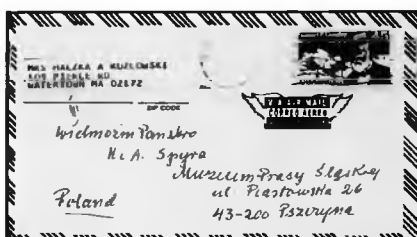 MRS HALZKA A KOZLOWSKI
WATERTOWN MA 02172
ZIP CODE
VIA AIR MAIL
CORREO AEREO
Wielmożni Państwo
H. i A. Spyra
Muzeum Prasy Śląskiej
ul. Piastowska 26
43-200 Pszczyna
Poland